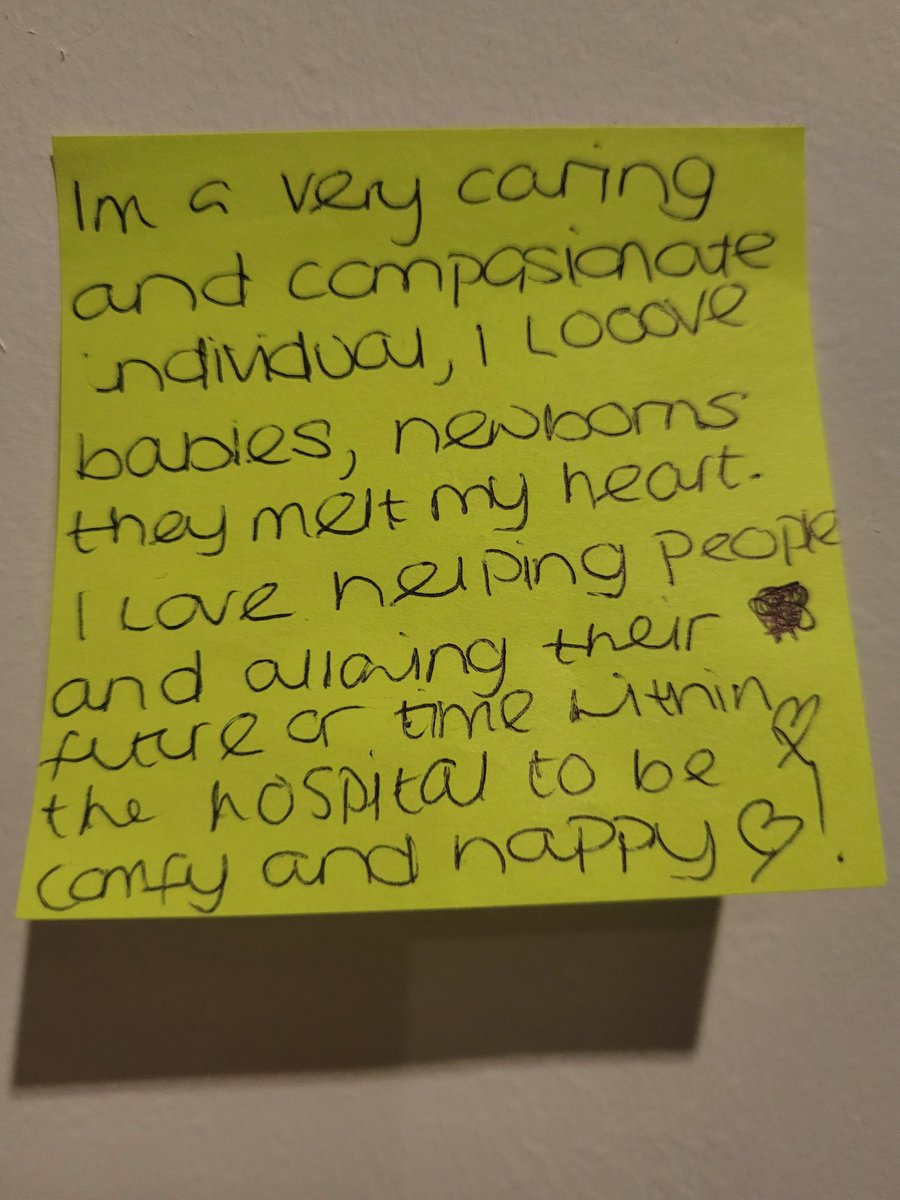 Im a very caring
and compasionate
individual, I Looove
babies, newborns
they melt my heart.
I Love helping people
and allowing their
future or time within
the hospital to be
comfy and happy ♡!